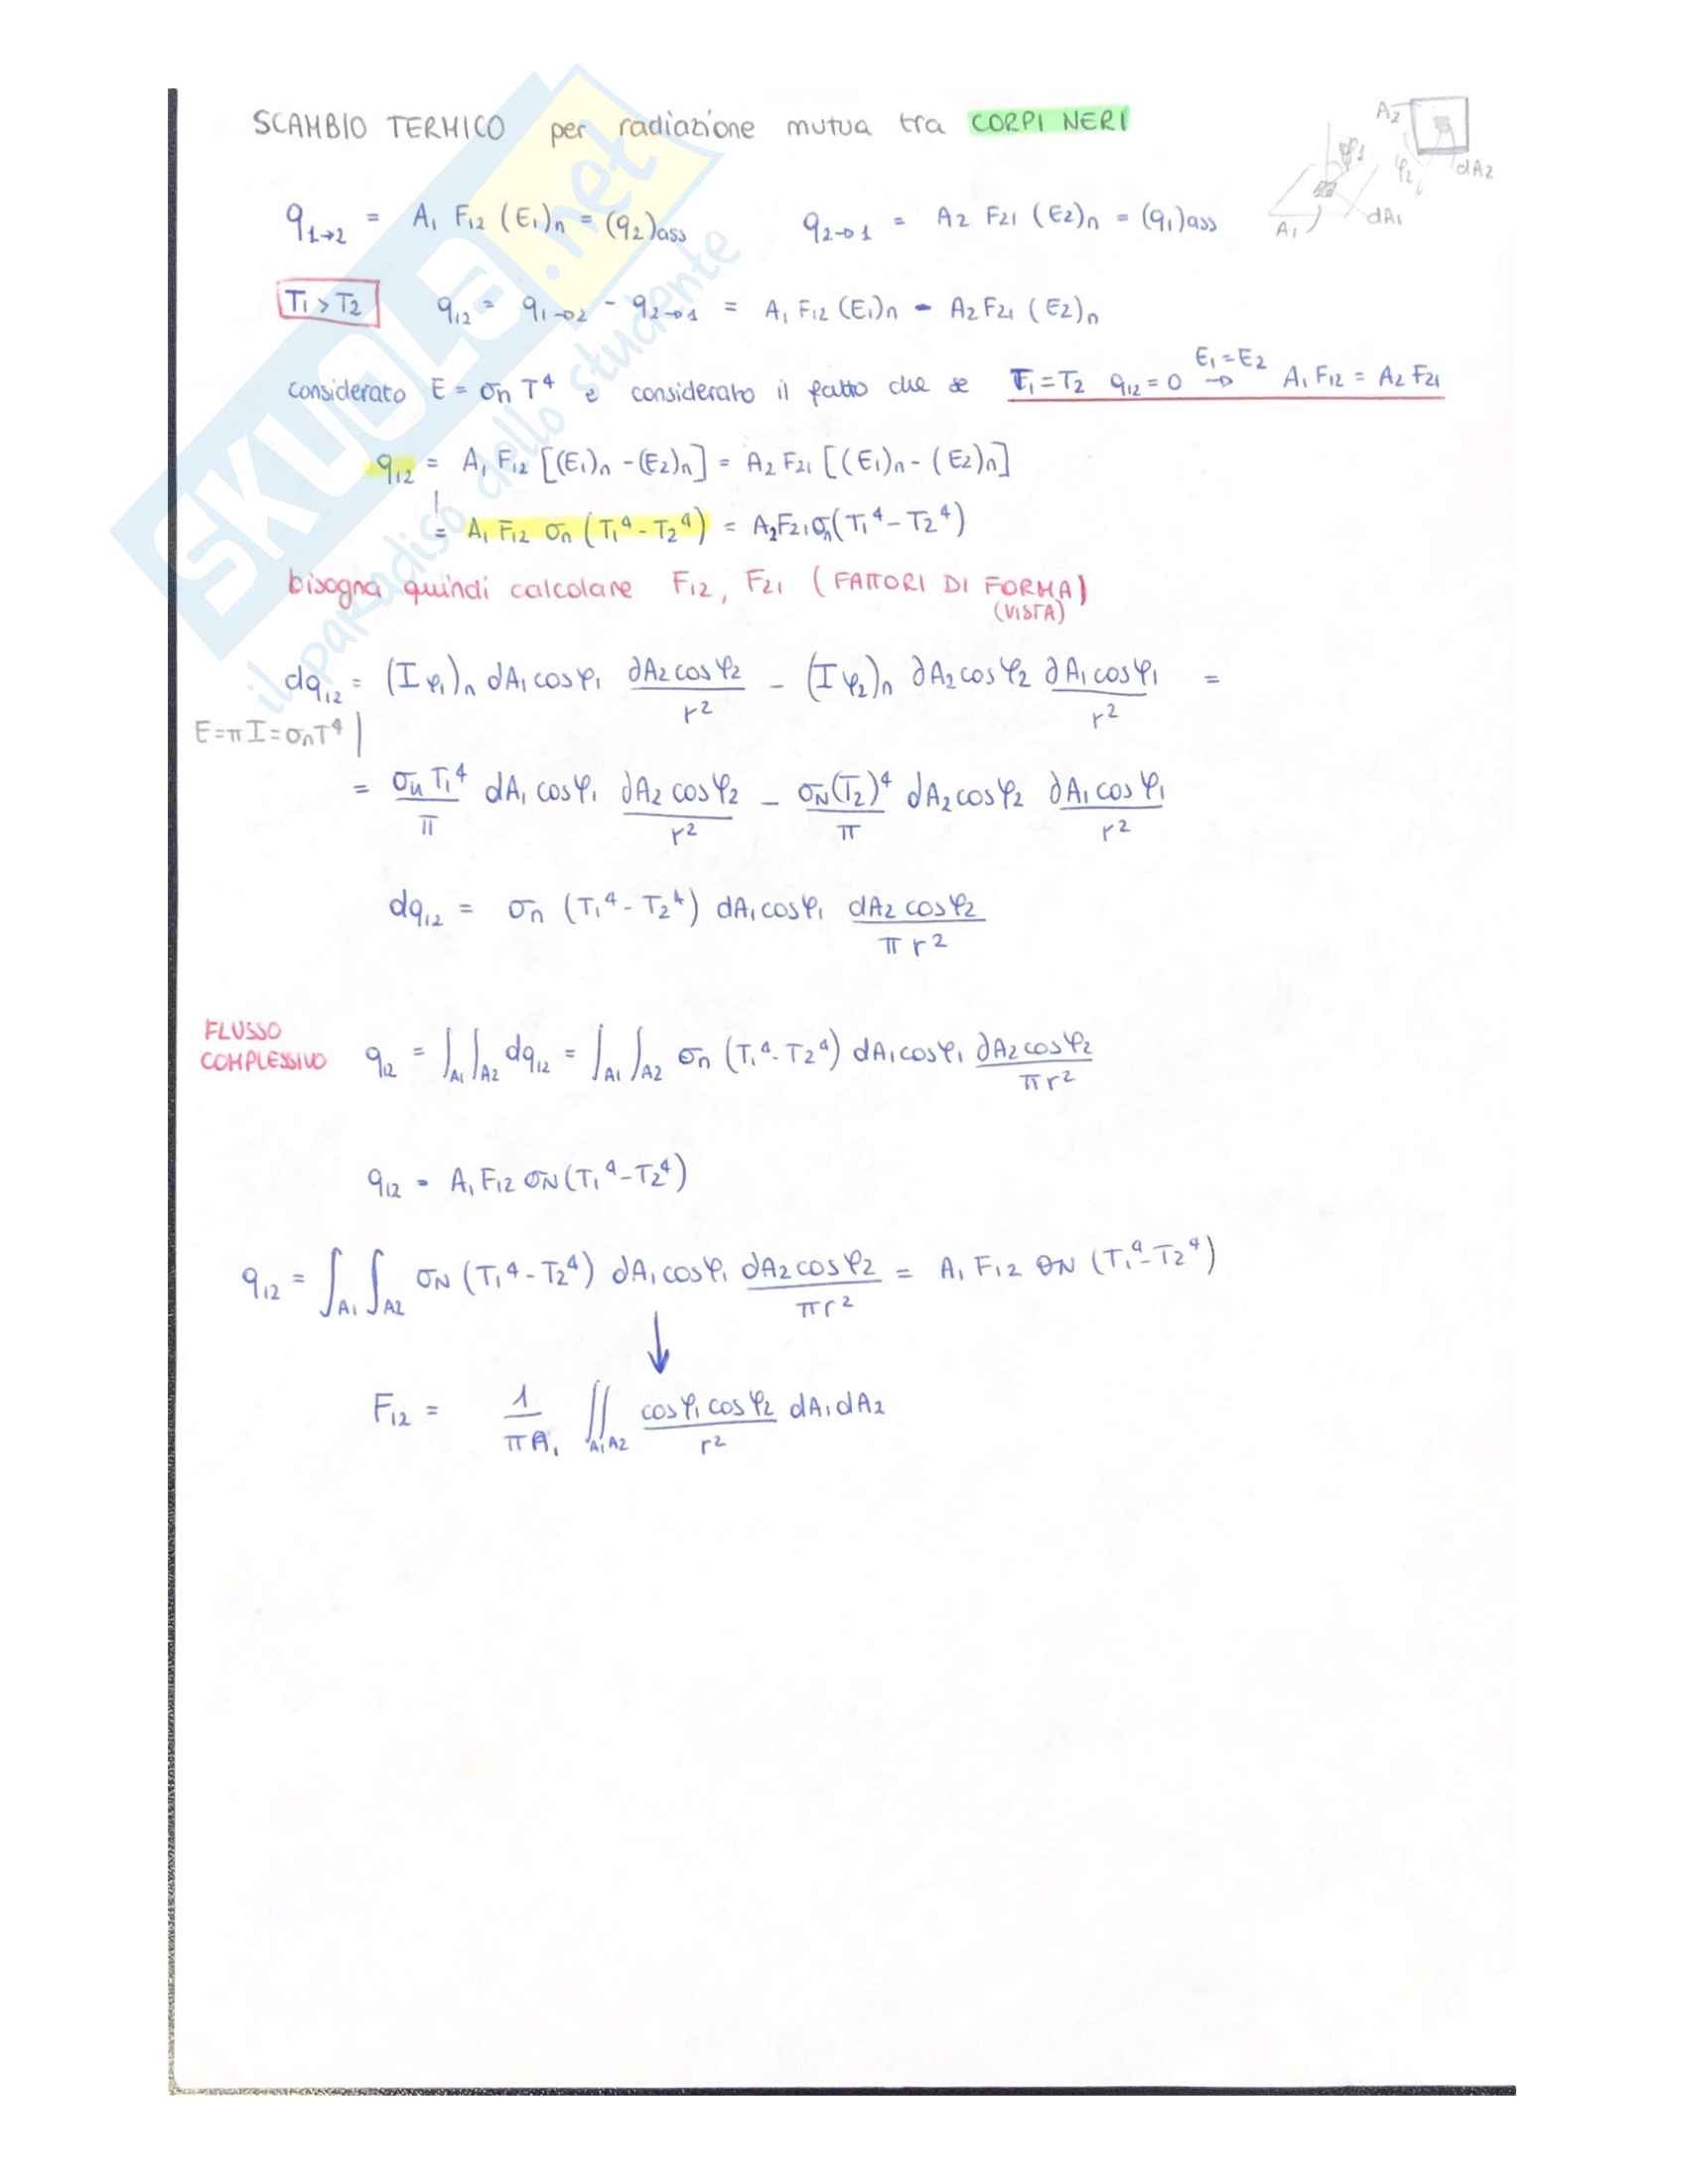 SCAMBIO TERMICO per radiazione mutua tra CORPI NERI
A2
φ1
φ2
dA2
dA1
A1
q1→2 = A1 F12 (E1)n = (q2)ass
q2→1 = A2 F21 (E2)n = (q1)ass
T1 > T2
q12 = q1→2 - q2→1 = A1 F12 (E1)n - A2 F21 (E2)n
considerato E = σn T⁴ e considerato il fatto che se T1 = T2 q12 = 0 E1 = E2 → A1 F12 = A2 F21
q12 = A1 F12 [(E1)n - (E2)n] = A2 F21 [(E1)n - (E2)n]
= A1 F12 σn (T1⁴ - T2⁴) = A2 F21 σn (T1⁴ - T2⁴)
bisogna quindi calcolare F12, F21 (FATTORI DI FORMA)
(VISTA)
dq12 = (Iφ1)n dA1 cosφ1 ∂A2 cosφ2 / r² - (Iφ2)n ∂A2 cosφ2 ∂A1 cosφ1 / r² =
E = π I = σn T⁴
= σn T1⁴ / π dA1 cosφ1 ∂A2 cosφ2 / r² - σN (T2)⁴ / π dA2 cosφ2 ∂A1 cosφ1 / r²
dq12 = σn (T1⁴ - T2⁴) dA1 cosφ1 dA2 cosφ2 / π r²
FLUSSO
COMPLESSIVO
q12 = ∫A1 ∫A2 dq12 = ∫A1 ∫A2 σn (T1⁴ - T2⁴) dA1 cosφ1 ∂A2 cosφ2 / π r²
q12 = A1 F12 σN (T1⁴ - T2⁴)
q12 = ∫A1 ∫A2 σN (T1⁴ - T2⁴) ∂A1 cosφ1 ∂A2 cosφ2 / π r² = A1 F12 σN (T1⁴ - T2⁴)
↓
F12 = 1 / πA1 ∬A1A2 cosφ1 cosφ2 / r² dA1 dA2
SKUOLa.net
il paradiso dello studente